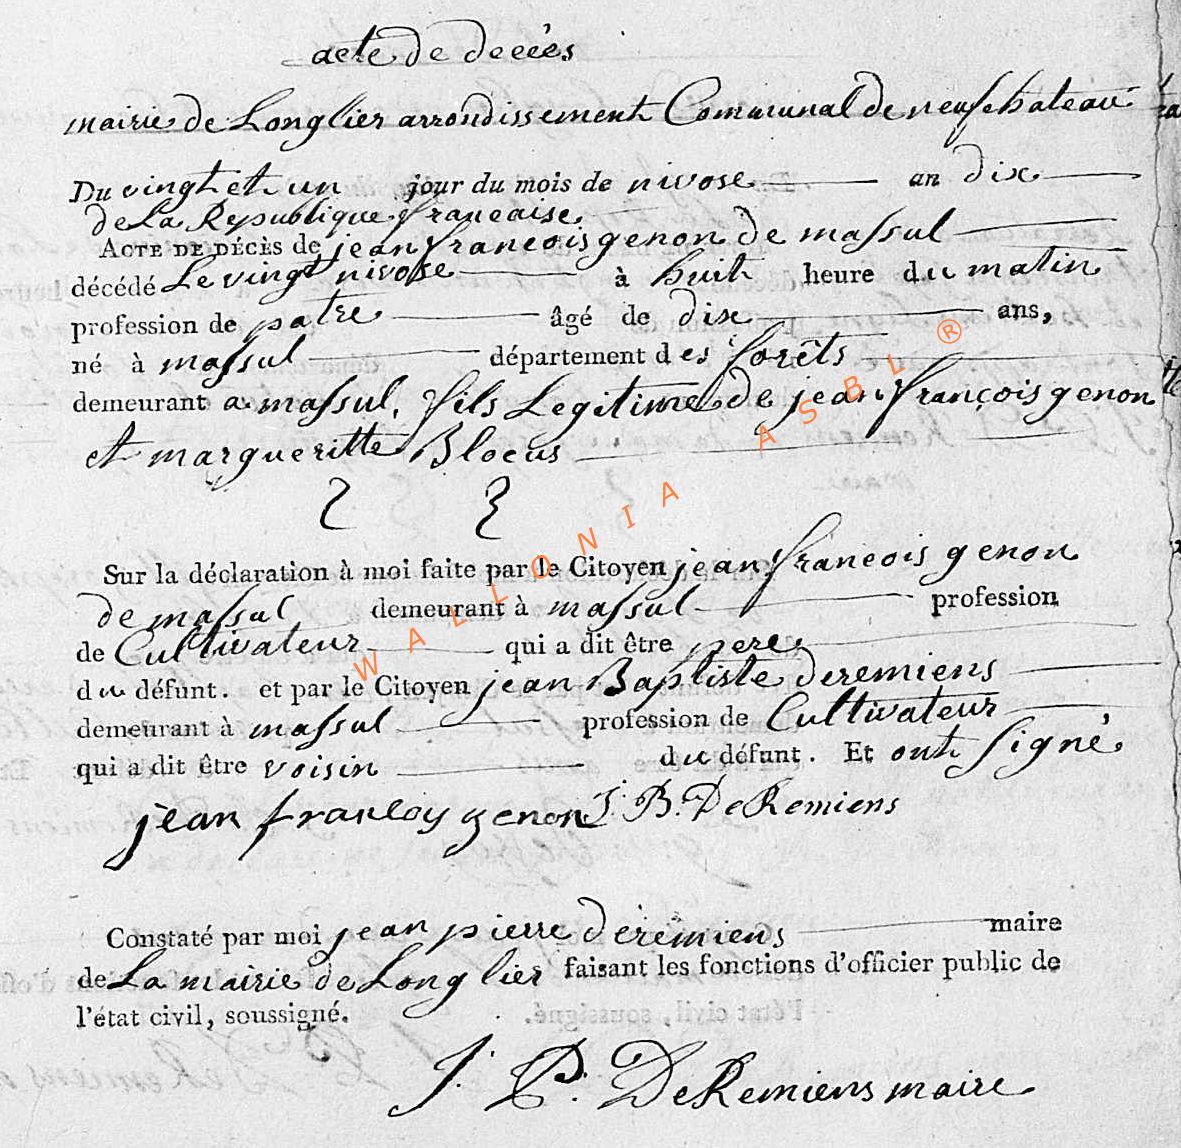 acte de decés
mairie de Longlier arrondissement Communal de neufchateau
Du vingt et un jour du mois de nivose an dix
de La Republique francaise
ACTE DE DÉCÈS de jean francois genon de massul
décédé Le vingt nivose à huit heure du matin
profession de patre âgé de dix ans,
né à massul département des forêts
demeurant a massul, fils Legitime de jean françois genon
et margueritte Blocus
Sur la déclaration à moi faite par le Citoyen jean francois genon
de massul demeurant à massul profession
de Cultivateur qui a dit être pere
du défunt. et par le Citoyen jean Baptiste deremiens
demeurant à massul profession de Cultivateur
qui a dit être voisin du défunt. Et ont signé
jean francoy genon J. B. DeRemiens
Constaté par moi jean pierre deremiens maire
de La mairie de Longlier faisant les fonctions d'officier public de
l'état civil, soussigné.
J. P. DeRemiens maire
WALLONIA ASBL ®